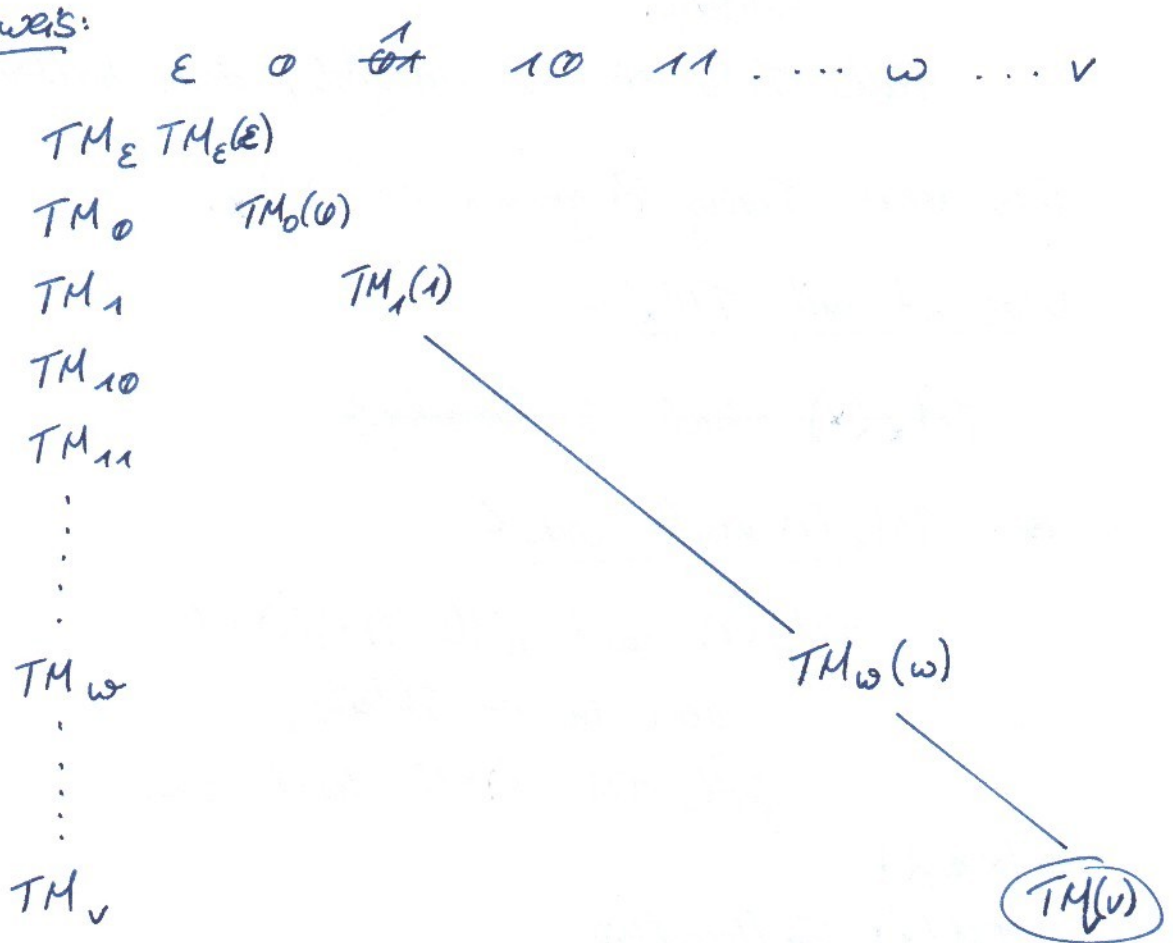 weis:
1
ε 0 01 10 11 . . . . ω . . . v
TM_ε TM_ε(ε)
TM_0 TM_0(0)
TM_1 TM_1(1)
TM_10
TM_11
TM_ω TM_ω(ω)
TM_v TM_v(v)